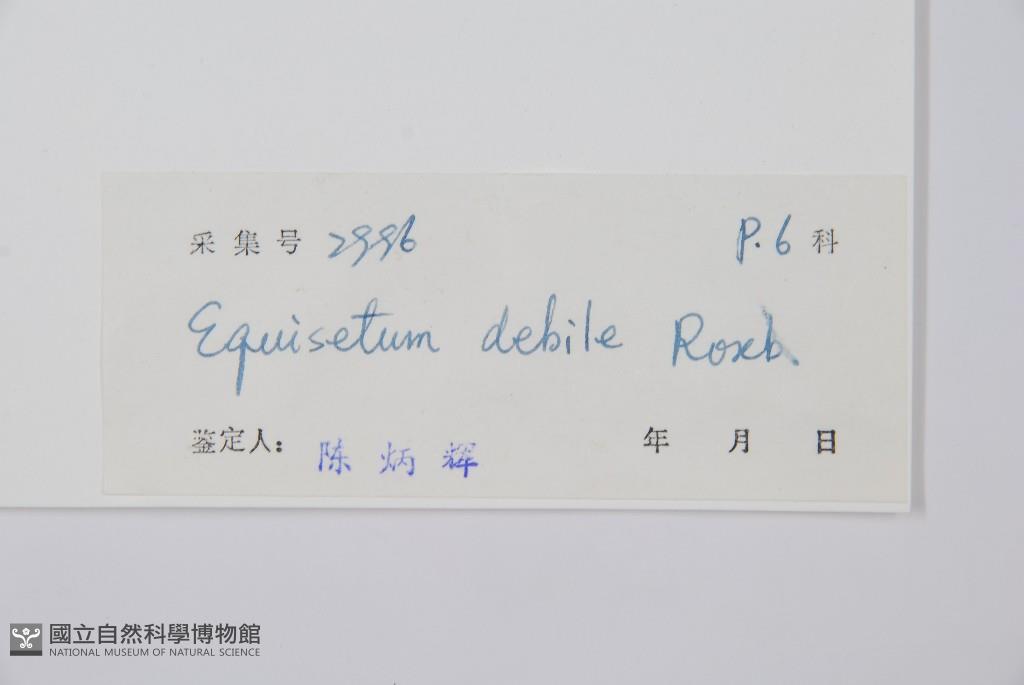 采集号 2996 P.6 科
Equisetum debile Roxb.
鉴定人: 陈炳辉 年 月 日
國立自然科學博物館
NATIONAL MUSEUM OF NATURAL SCIENCE